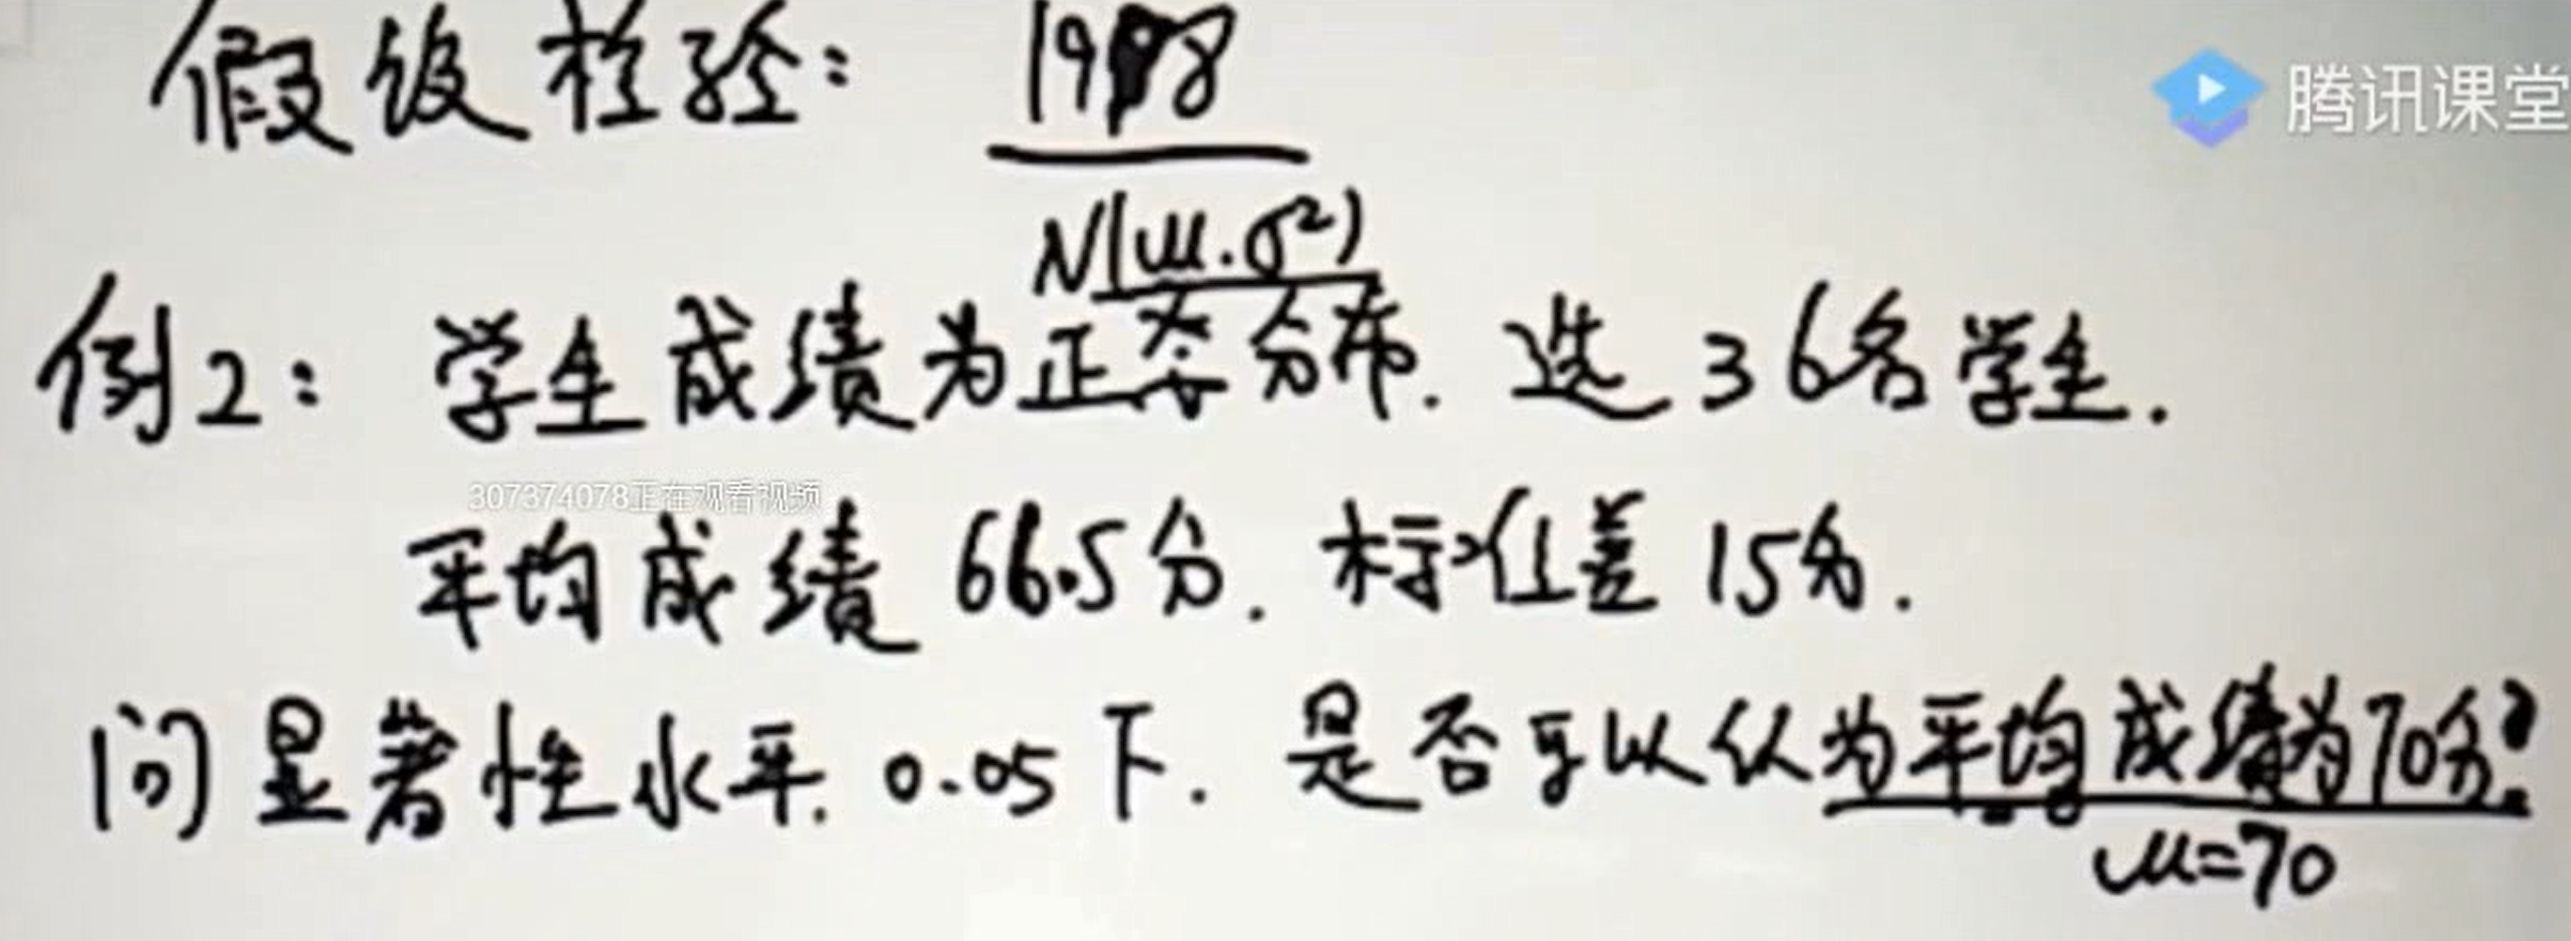 假设检验： 1998
腾讯课堂
N(μ.σ²)
例2： 学生成绩为正态分布. 选36名学生.
307374078正在观看视频
平均成绩 66.5分. 标准差 15分.
问显著性水平 0.05下. 是否可以认为平均成绩为70分?
μ=70